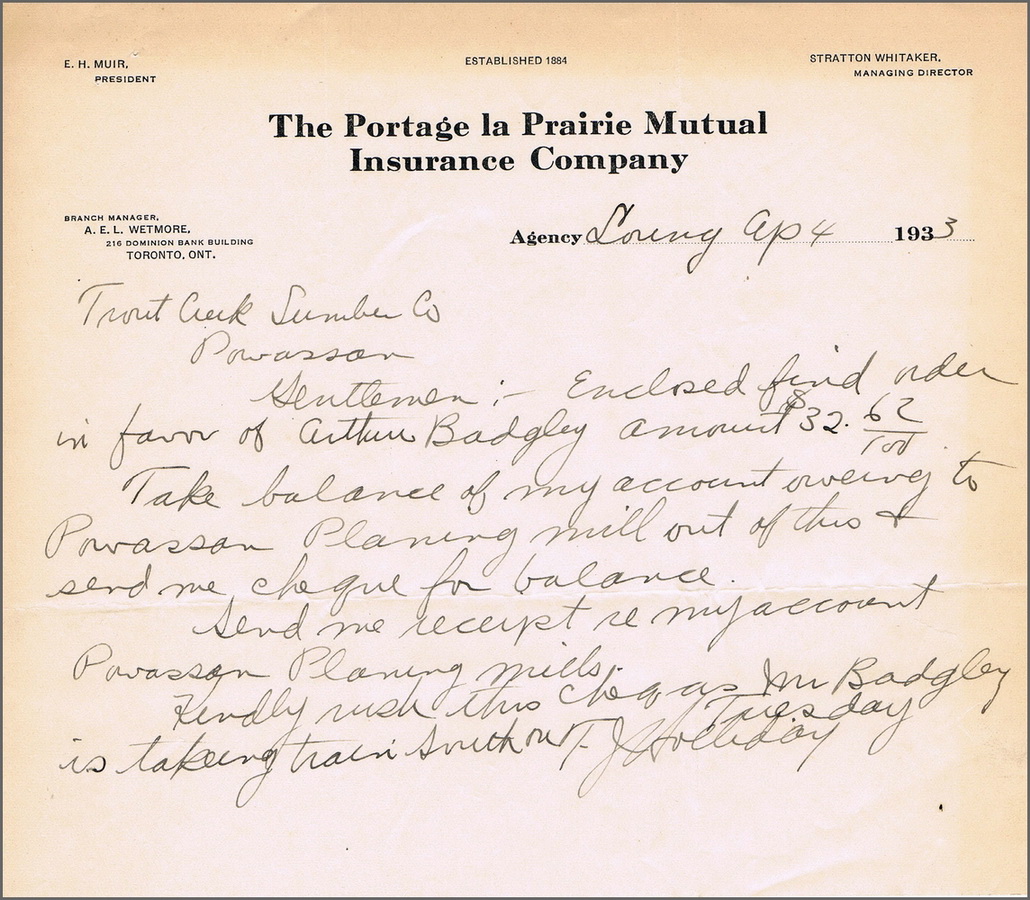 E. H. MUIR,
PRESIDENT
ESTABLISHED 1884
STRATTON WHITAKER,
MANAGING DIRECTOR
The Portage la Prairie Mutual
Insurance Company
BRANCH MANAGER,
A. E. L. WETMORE,
216 DOMINION BANK BUILDING
TORONTO, ONT.
Agency Loring Ap 4 1933
Trout Creek Lumber Co
Powassan
Gentlemen :- Enclosed find order
in favor of Arthur Badgley amount $32. 62/100
Take balance of my account oweing to
Powassan Planing mill out of this &
send me cheque for balance.
Send me receipt re my account
Powassan Planing mills.
Kindly rush this cheq as Mr Badgley
is takeing train south on Tuesday
T. J. Holliday